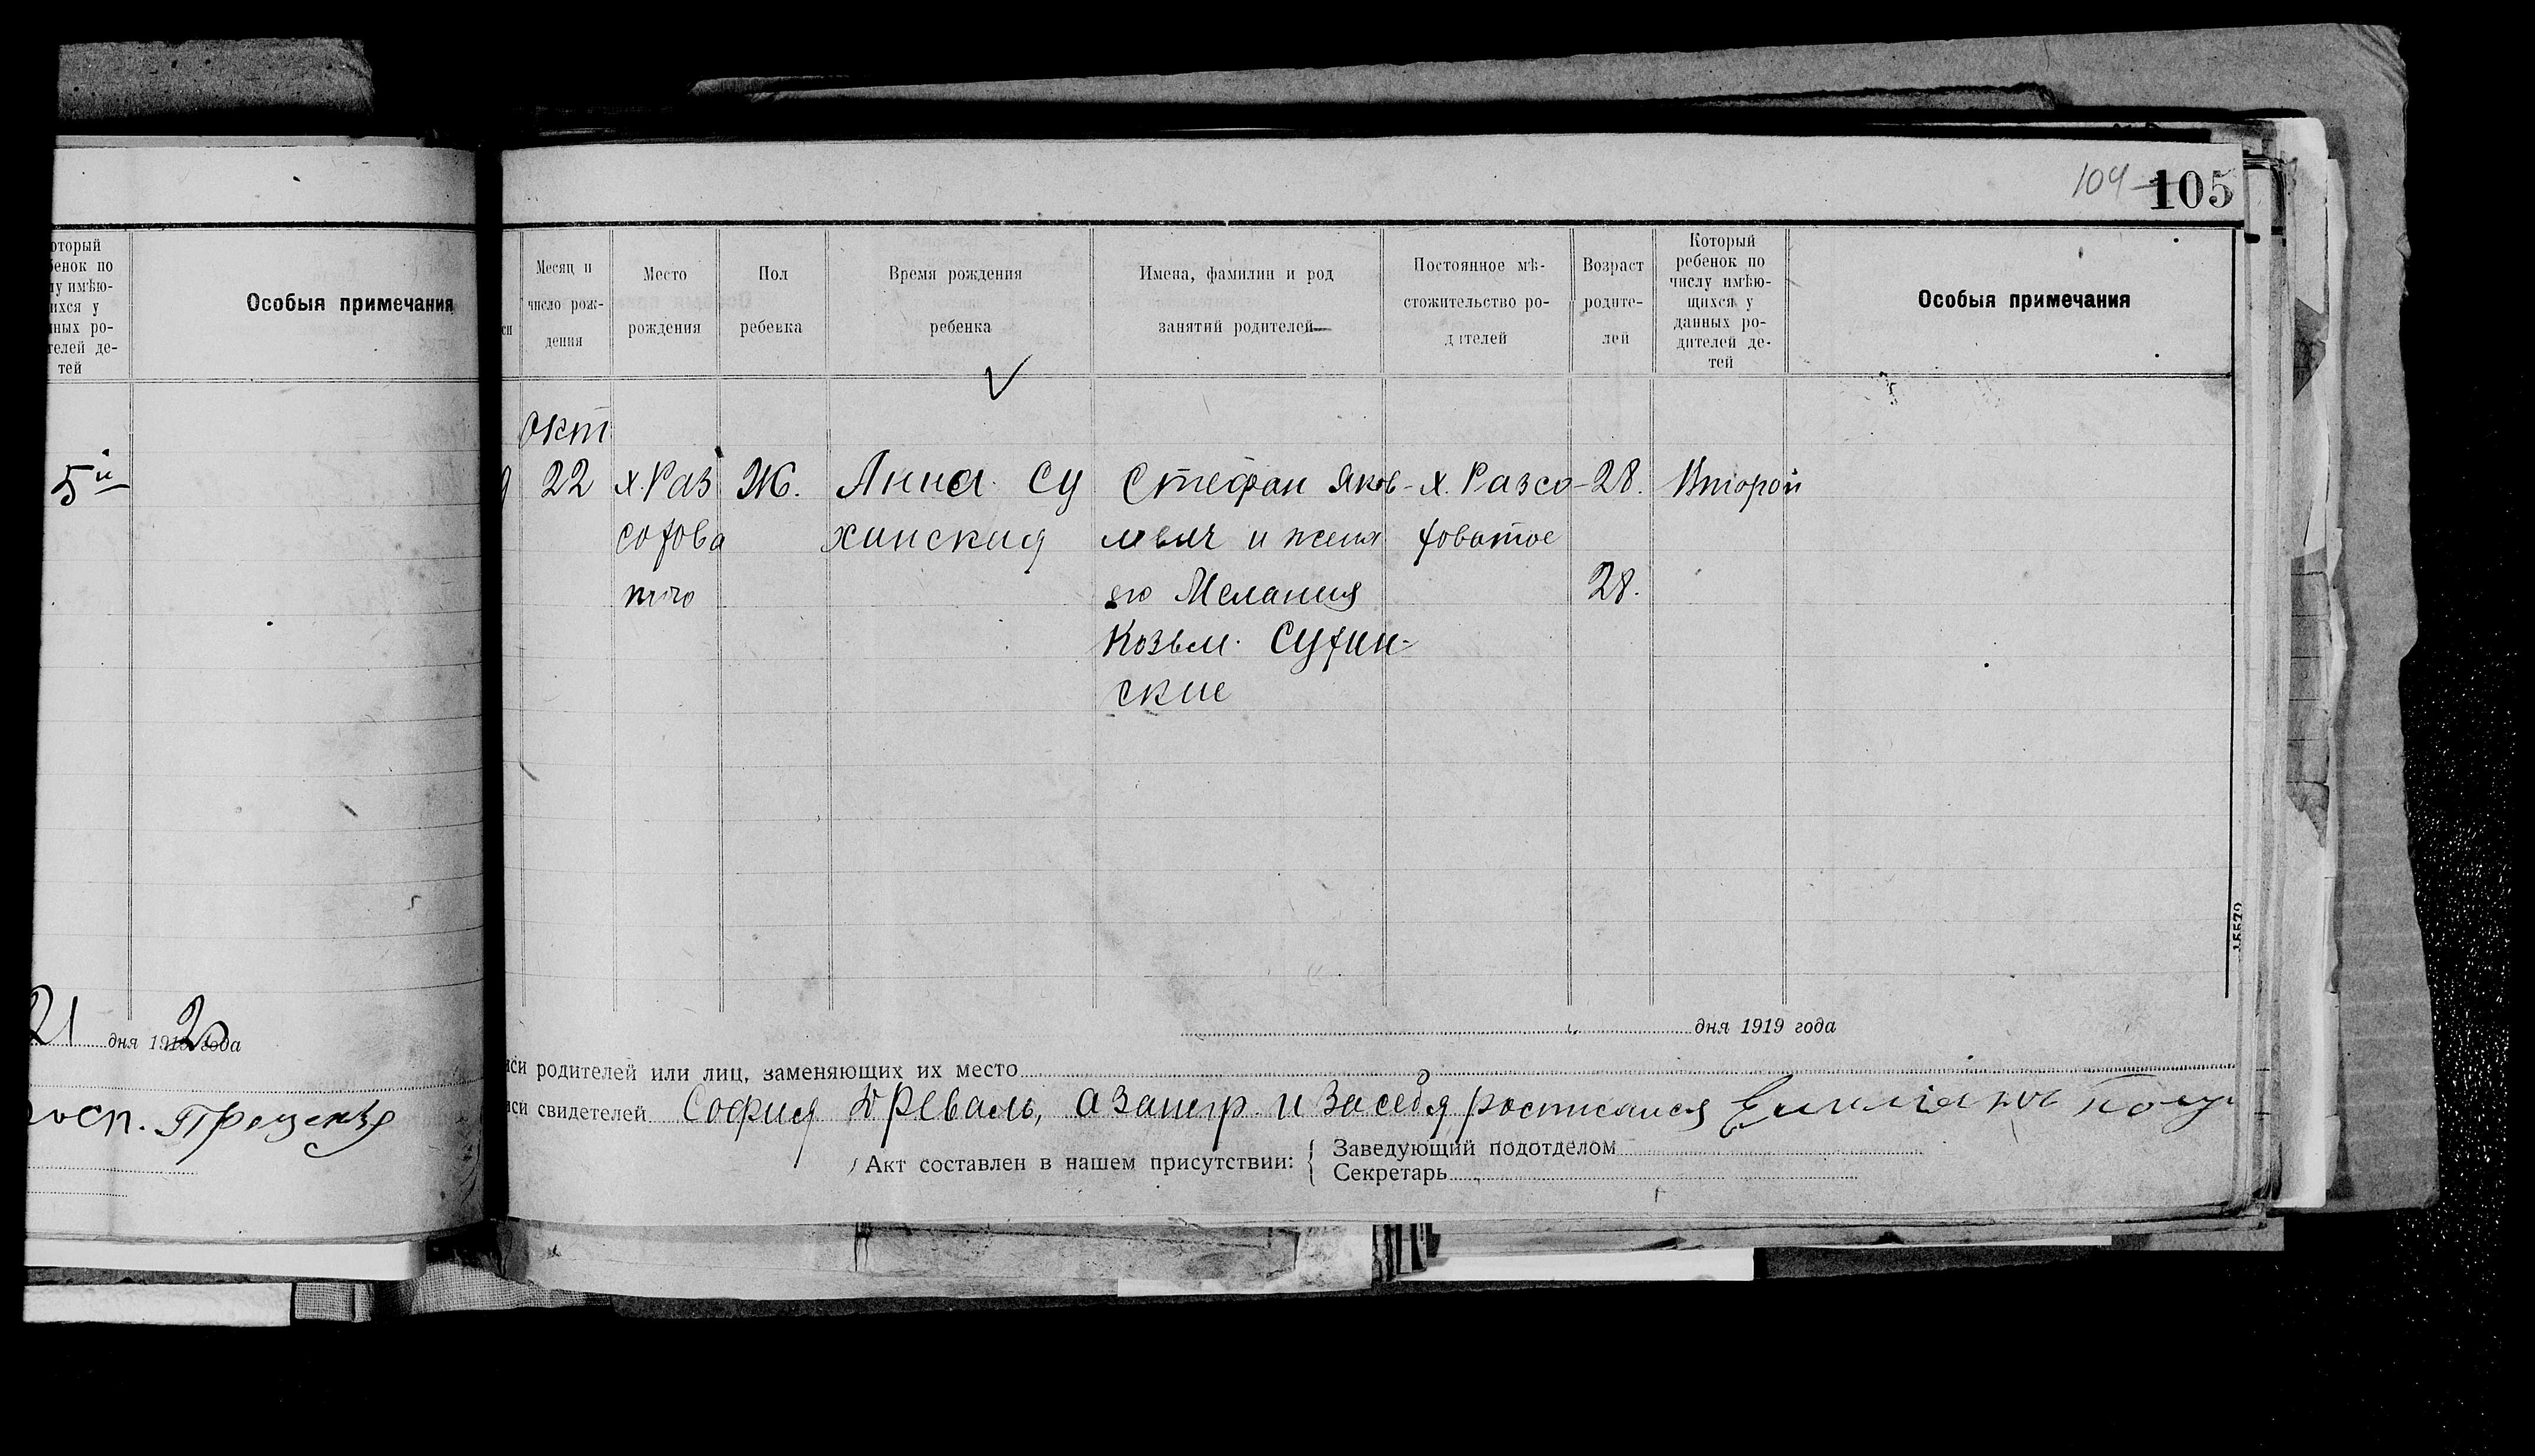 104 105
оторый
бенок по
лу имѣю-
ихся у
нных ро-
телей де-
тей
Особыя примечания
5й
21 дня 1919 20 года
Месяц и
число рож-
дения
Место
рождения
Пол
ребенка
Время рождения
ребенка
Имена, фамилии и род
занятий родителей
Постоянное мѣ-
стожительство ро-
дителей
Возраст
родите-
лей
Который
ребенок по
числу имѣю-
щихся у
данных ро-
дителей де-
тей
Особыя примечания
окт
22 х. Раз Ж. Анна Су Стефан Яков- х. Разсо- 28. Второй
сохова хинская левич и жена ховатое
того его Мелания 28.
Козьм. Сухин-
ские
15579
дня 1919 года
иси родителей или лиц, заменяющих их место
иси свидетелей София Древаль, а за негр. и за себя росписался
Акт составлен в нашем присутствии: { Заведующий подотделом
Секретарь